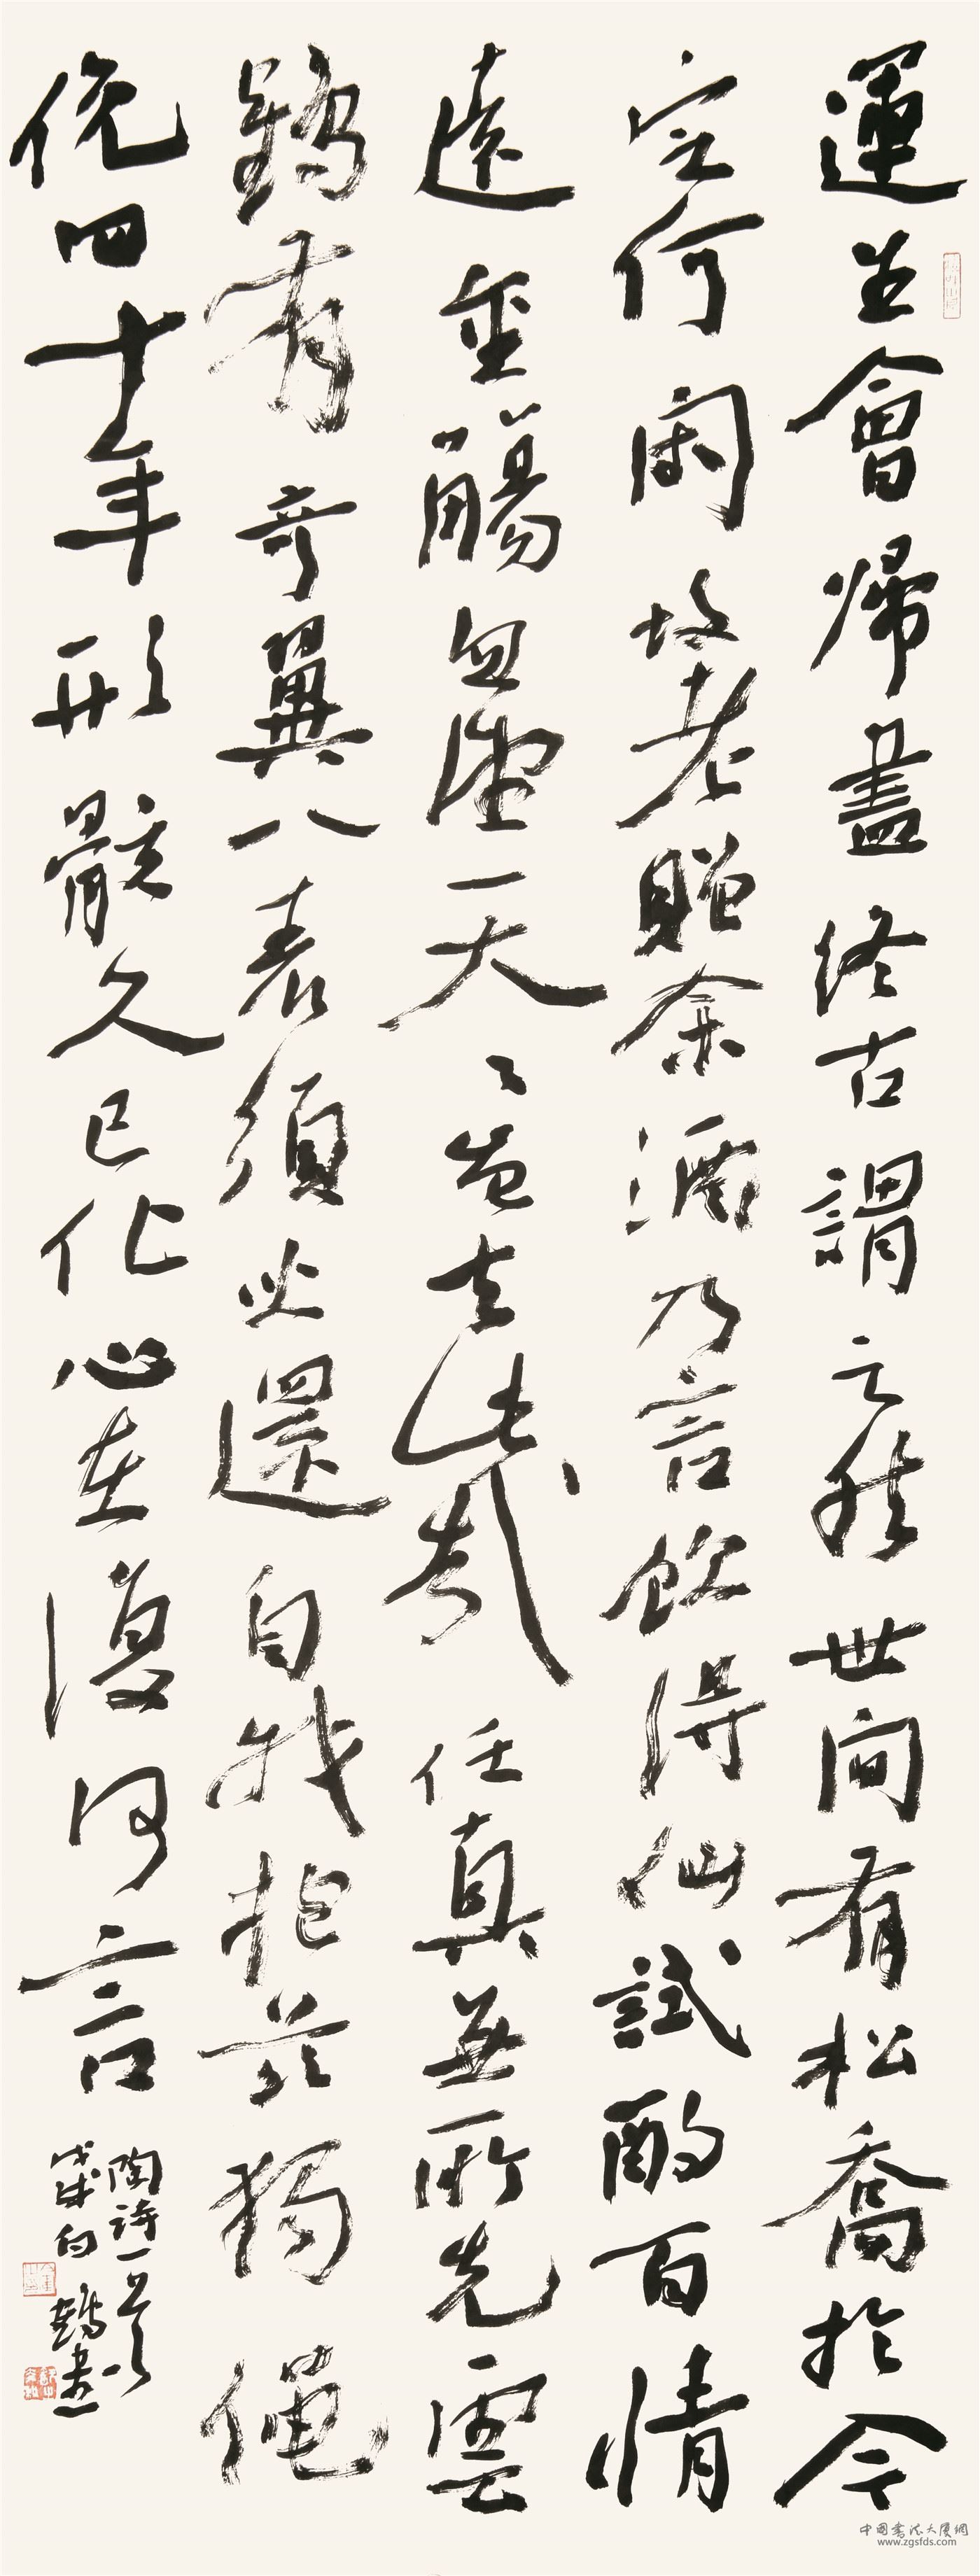 運生會歸盡終古謂之然世間有松喬於今
定何閑故老贈余酒乃言飲得仙試酌百情
遠重觴忽忘天々豈去此哉任真無所先雲
鶴有奇翼八表須臾還自我抱茲獨僶
俛四十年形骸久已化心在復何言
陶詩一首
戊戌 鶴書
中国书法大厦网
www.zgsfds.com